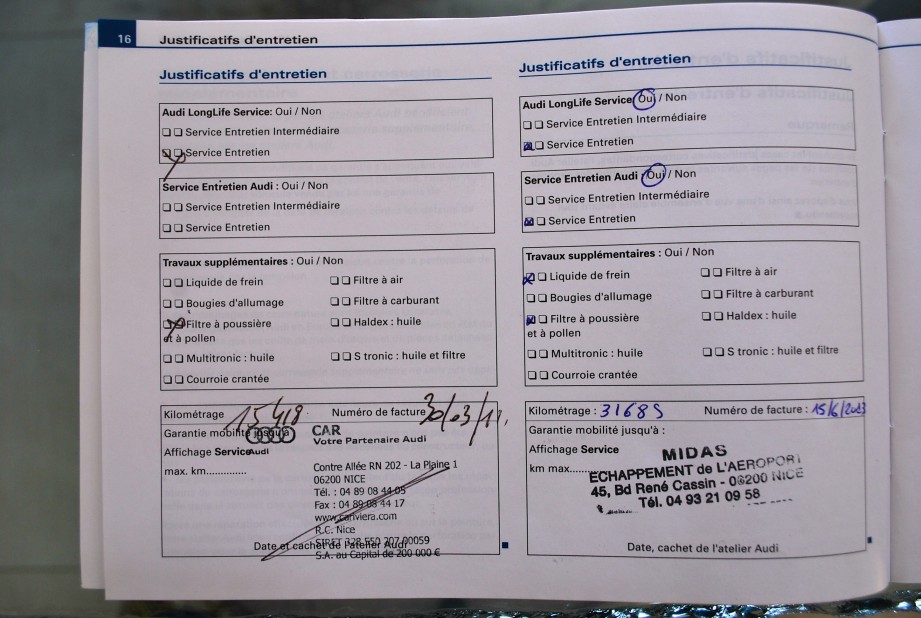 16
Justificatifs d'entretien
Justificatifs d'entretien
Audi LongLife Service: Oui / Non
Service Entretien Intermédiaire
Service Entretien
Service Entretien Audi : Oui / Non
Service Entretien Intermédiaire
Service Entretien
Travaux supplémentaires : Oui / Non
Liquide de frein
Filtre à air
Bougies d'allumage
Filtre à carburant
Filtre à poussière
et à pollen
Haldex : huile
Multitronic : huile
S tronic : huile et filtre
Courroie crantée
Kilométrage
Numéro de facture
Garantie mobilité jusqu'à
CAR
Votre Partenaire Audi
Affichage Service
Audi
max. km.............
Contre Allée RN 202 - La Plaine 1
06200 NICE
Tél. : 04 89 08 44 05
Fax : 04 89 08 44 17
www.cariviera.com
R.C. Nice
Date et cachet de l'atelier Audi
S.A. au Capital de 200 000 €
Justificatifs d'entretien
Audi LongLife Service Oui / Non
Service Entretien Intermédiaire
Service Entretien
Service Entretien Audi : Oui / Non
Service Entretien Intermédiaire
Service Entretien
Travaux supplémentaires : Oui / Non
Liquide de frein
Filtre à air
Bougies d'allumage
Filtre à carburant
Filtre à poussière
et à pollen
Haldex : huile
Multitronic : huile
S tronic : huile et filtre
Courroie crantée
Kilométrage :
Numéro de facture :
Garantie mobilité jusqu'à :
Affichage Service
km max.......
MIDAS
ECHAPPEMENT de L'AEROPORT
45, Bd René Cassin - 06200 NICE
Tél. 04 93 21 09 58
Date, cachet de l'atelier Audi